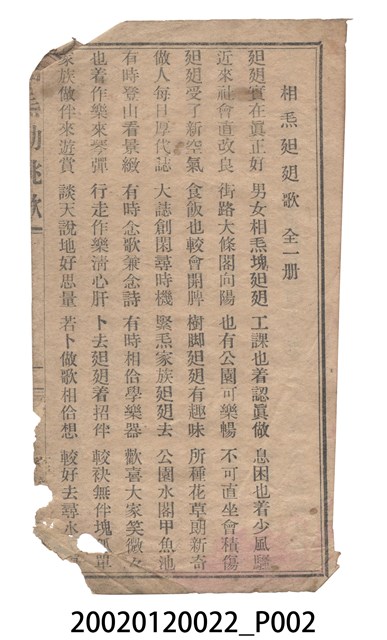 相焄𨑨迌歌 全一册
𨑨迌實在眞正好 男女相焄塊𨑨迌 工課也着認眞做 息困也着少風騷
近來社會直改良 街路大條閣向陽 也有公園可樂暢 不可直坐會積傷
𨑨迌受了新空氣 食飯也較會開脾 樹脚𨑨迌有趣味 所種花草朗新奇
做人每日厚代誌 大誌創閑尋時機 緊焄家族𨑨迌去 公園水閣甲魚池
有時登山看景緻 有時念歌兼念詩 有時相佮學樂器 歡喜大家笑微々
也着作樂來琴彈 行走作樂淸心肝 卜去𨑨迌着招伴 較袂無伴塊 單
家族做伴來遊賞 談天說地好思量 若卜做歌相佮想 較好去尋水
歌
20020120022_P002